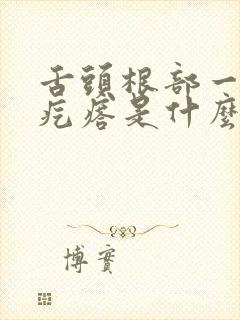 舌頭根部一
疙瘩是什麼
博實